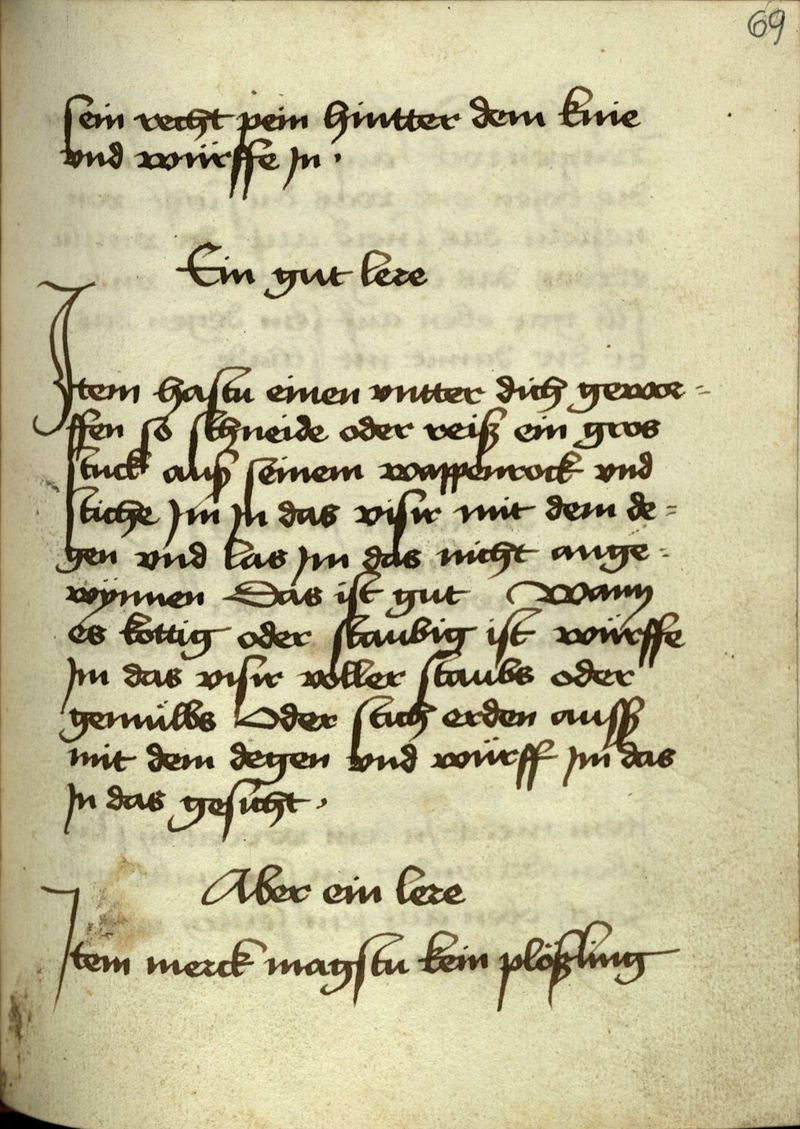 69
sein recht pein hintter dem knie
vnd würffe Jn .
Ein gut lere
Jtem hastu einen vntter dich gewor=
ffen so schneide oder reiß ein gros
stuck auß seinem wappenrock vnd
stiche Jm Jn das visir mit dem de=
gen vnd las Jm das nicht ange=
wynnen Das ist gut Wann
es kottig oder staubig ist würffe
Jm das visir voller staubs oder
gemülbs Oder stich erden ausß
mit dem degen vnd würff Jm das
Jn das gesicht .
Aber ein lere
Jtem merck magstu kein plößling